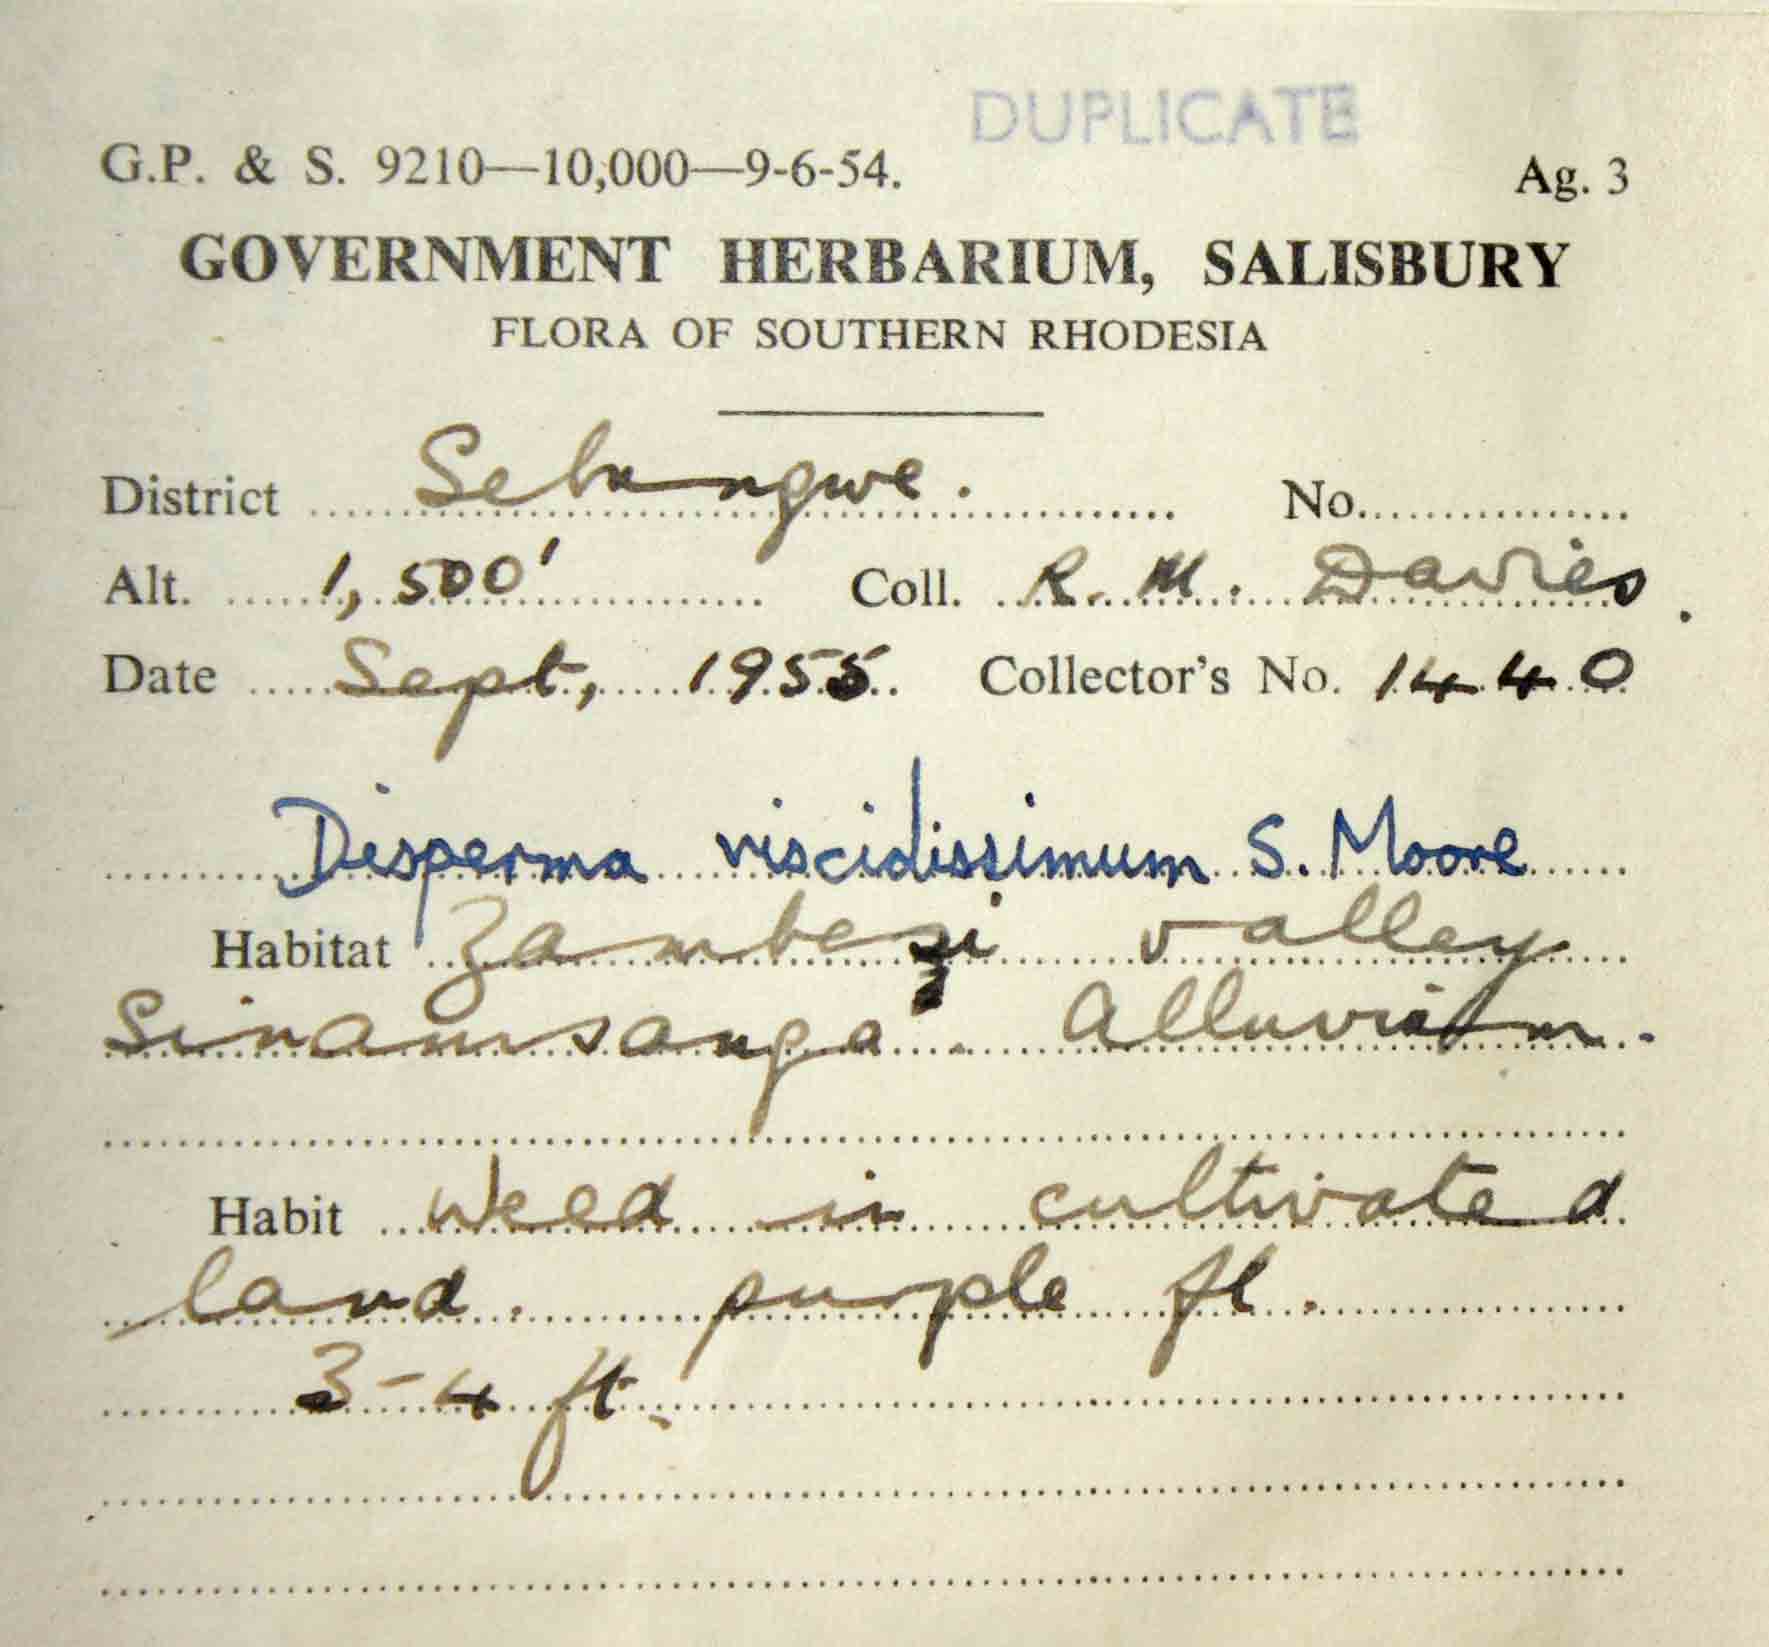 DUPLICATE
G.P. & S. 9210—10,000—9-6-54. Ag. 3
GOVERNMENT HERBARIUM, SALISBURY
FLORA OF SOUTHERN RHODESIA
District Sebungwe. No.
Alt. 1,500' Coll. R. M. Davies.
Date Sept, 1955 Collector's No. 1440
Disperma viscidissimum S. Moore
Habitat Zambezi valley
Sinamsanga. Alluvium.
Habit Weed in cultivated
land. purple fl.
3-4 ft.